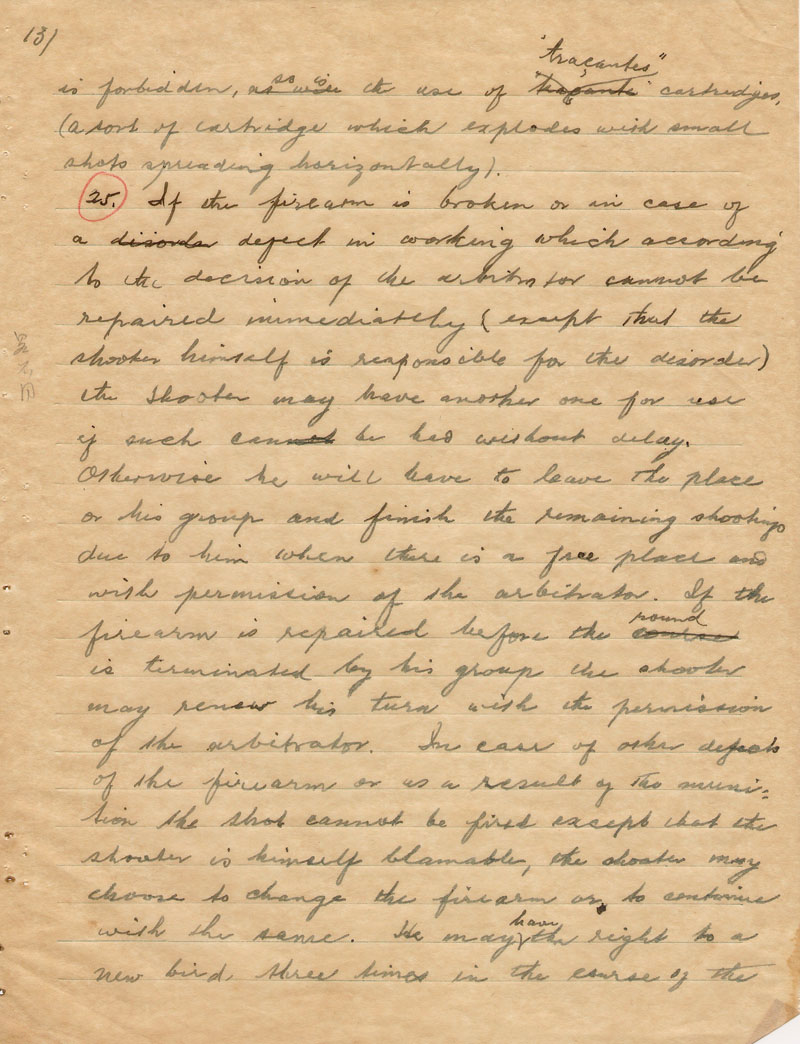 13/
"traçantes"
is forbidden, as so is the use of "traçante" cartridges,
(a sort of cartridge which explodes with small
shots spreading horizontally).
25. If the firearm is broken or in case of
a disorder defect in working which according
to the decision of the arbitrator cannot be
repaired immediately (except that the
shooter himself is responsible for the disorder)
the shooter may have another one for use
if such cannot be had without delay.
Otherwise he will have to leave the place
or his group and finish the remaining shootings
due to him when there is a free place and
with permission of the arbitrator. If the
round
firearm is repaired before the course
is terminated by his group the shooter
may renew his turn with the permission
of the arbitrator. In case of other defects
of the firearm or as a result of the muni=
tion the shot cannot be fired except that the
shooter is himself blamable, the shooter may
choose to change the firearm or to continue
have
with the same. He may the right to a
new bird three times in the course of the